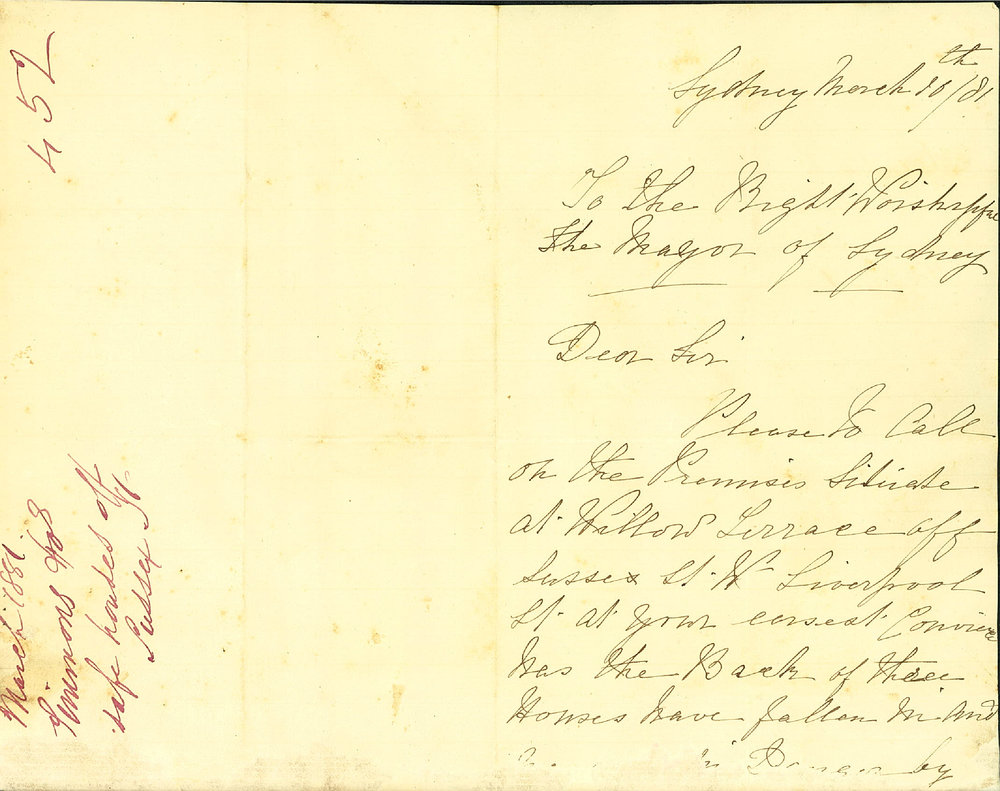 452
March 1881.
Simmons
safe houses off
Sussex St
Sydney March 10th/81
To the Right Worshipful
the Mayor of Sydney
Dear Sir
Please to Call
on the Premises Situate
at Willow Terrace off
Sussex St. Nr Liverpool
St. at your
has the Back of three
Houses have fallen in and
in Danger by